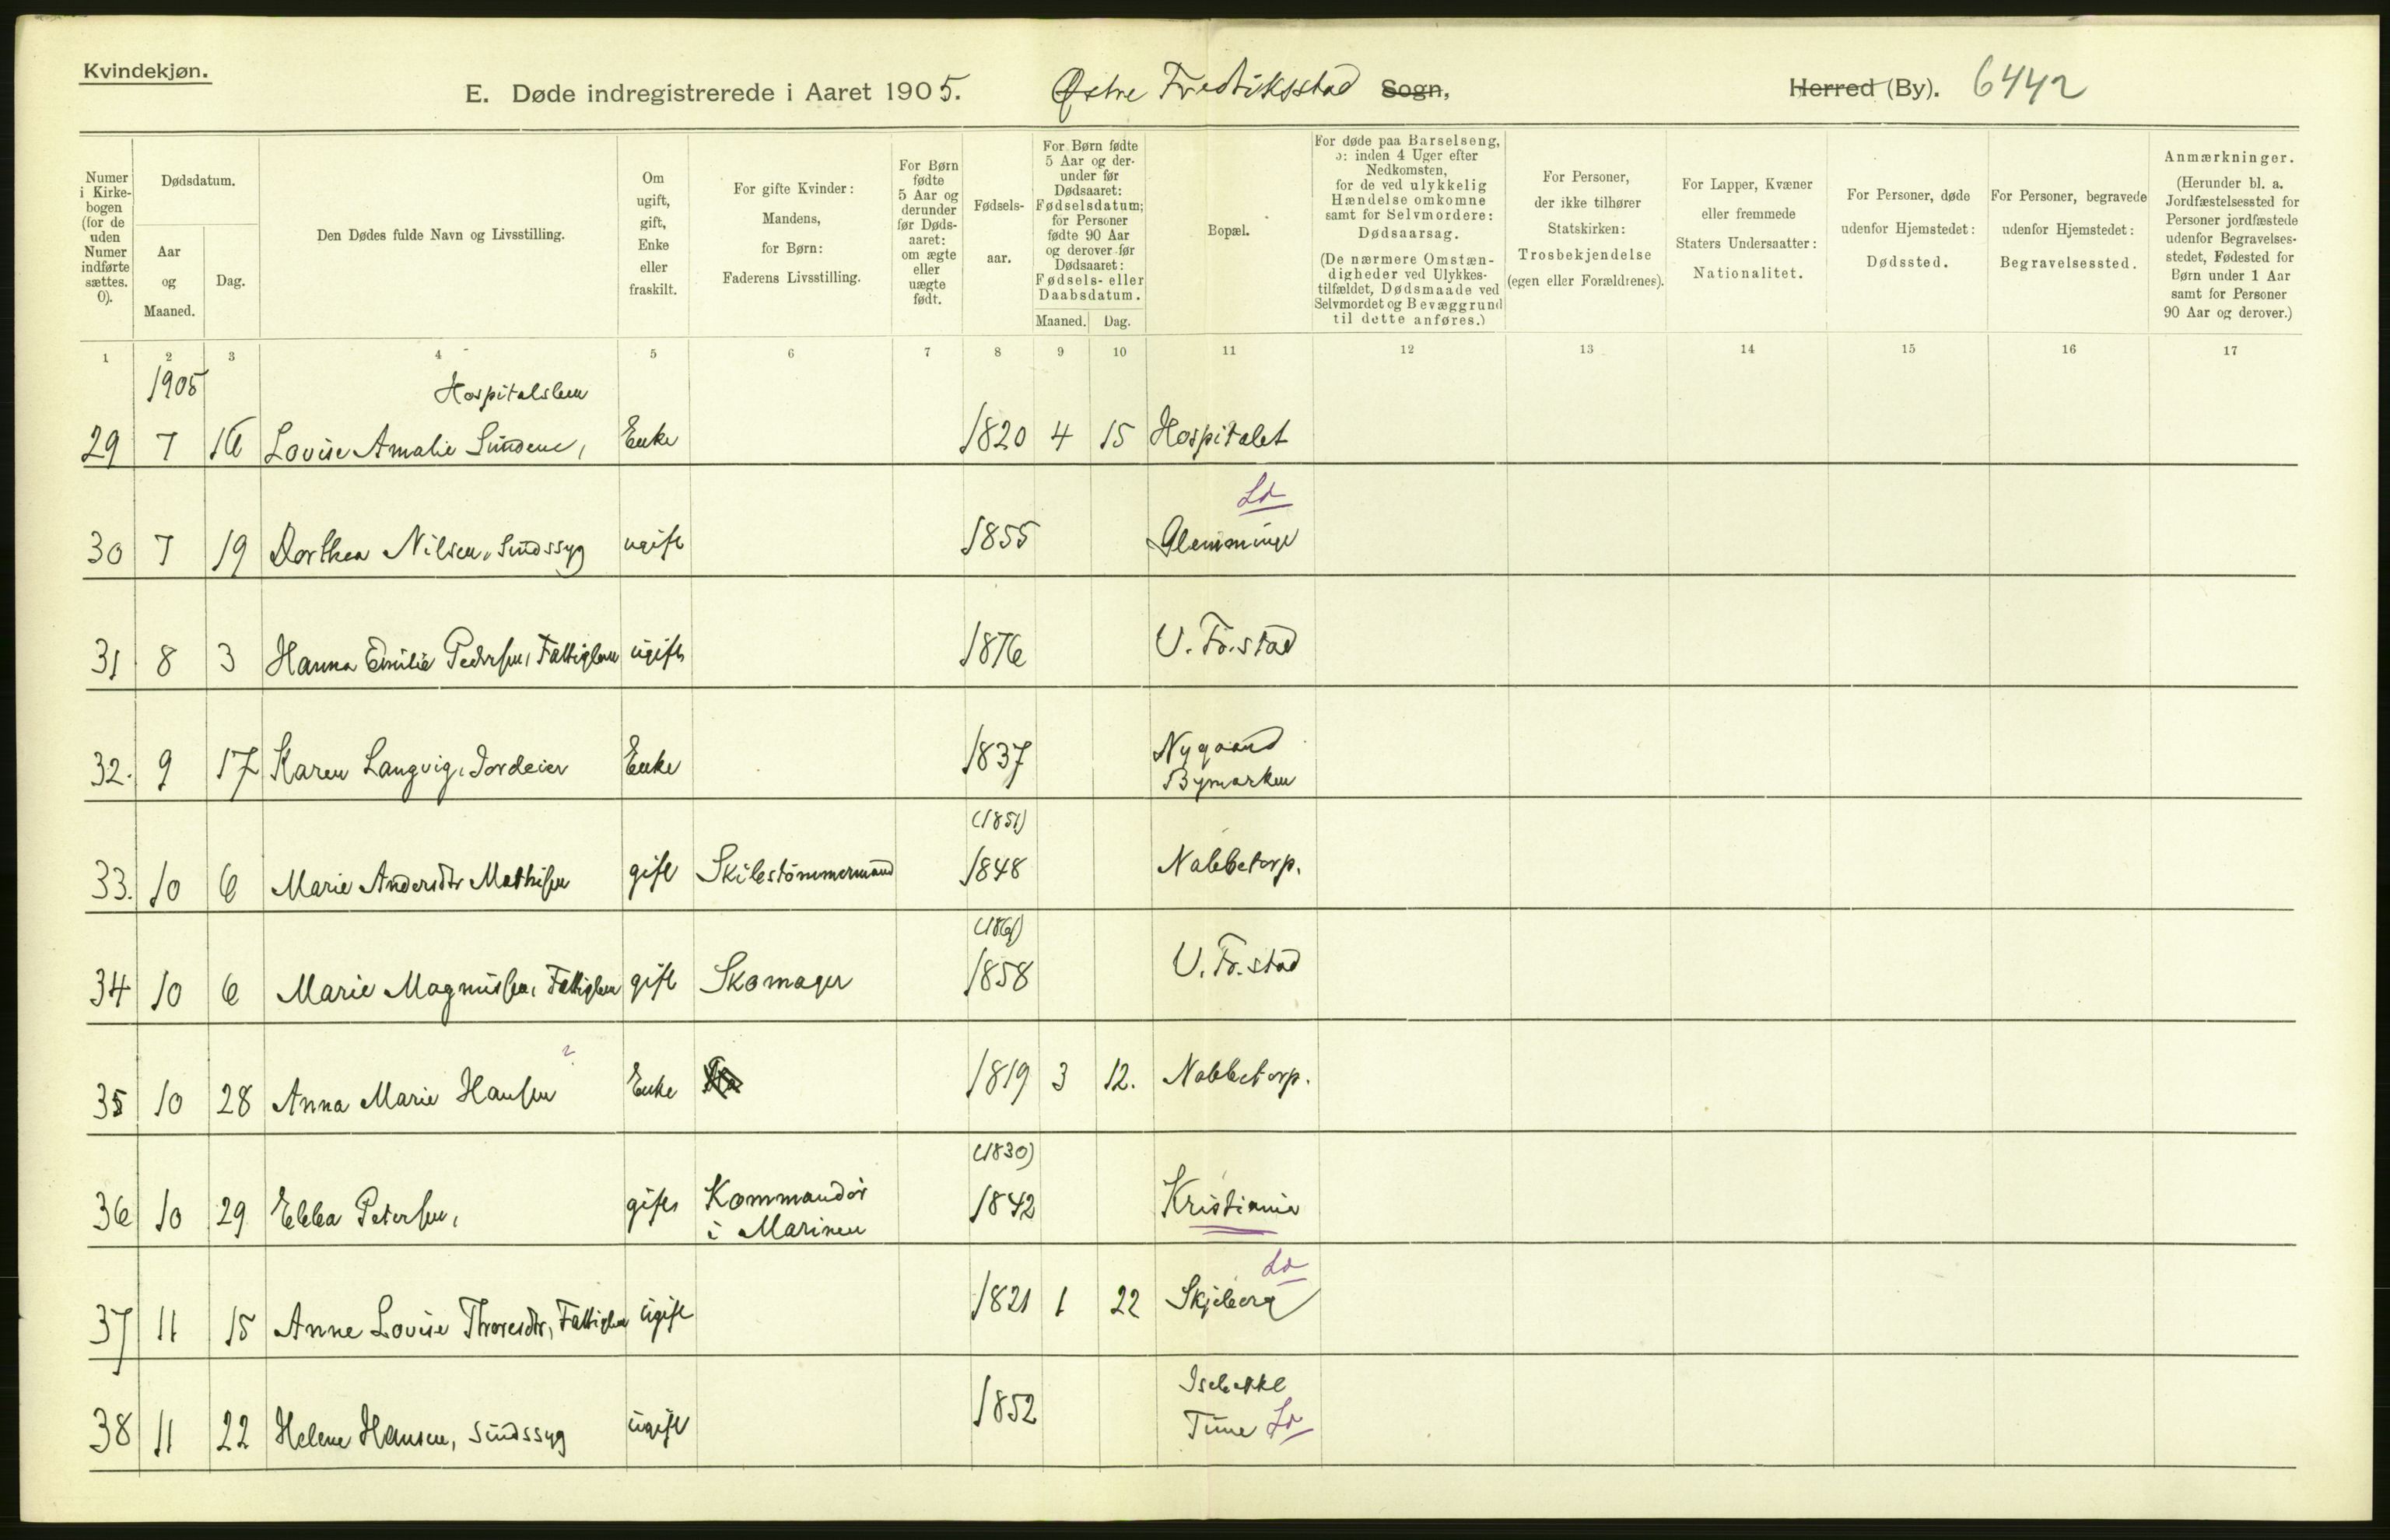 Kvindekjøn.
E. Døde indregistrerede i Aaret 1905. Østre Fredriksstad Sogn, Herred (By). 6442
Numer i Kirkebogen (for de uden Numer indførte sættes. 0).
Dødsdatum.
Aar og Maaned.
Dag.
Den Dødes fulde Navn og Livsstilling.
Om ugift, gift, Enke eller fraskilt.
For gifte Kvinder: Mandens, for Børn: Faderens Livsstilling.
For Børn fødte 5 Aar og derunder før Dødsaaret: om ægte eller uægte født.
Fødselsaar.
For Børn fødte 5 Aar og derunder før Dødsaaret: Fødselsdatum; for Personer fødte 90 Aar og derover før Dødsaaret: Fødsels- eller Daabsdatum.
Maaned. Dag.
Bopæl.
For døde paa Barselseng, ɔ: inden 4 Uger efter Nedkomsten, for de ved ulykkelig Hændelse omkomne samt for Selvmordere: Dødsaarsag. (De nærmere Omstændigheder ved Ulykkestilfældet, Dødsmaade ved Selvmordet og Bevæggrund til dette anføres.)
For Personer, der ikke tilhører Statskirken: Trosbekjendelse (egen eller Forældrenes).
For Lapper, Kvæner eller fremmede Staters Undersaatter: Nationalitet.
For Personer, døde udenfor Hjemstedet: Dødssted.
For Personer, begravede udenfor Hjemstedet: Begravelsessted.
Anmærkninger. (Herunder bl. a. Jordfæstelsessted for Personer jordfæstede udenfor Begravelsesstedet, Fødested for Børn under 1 Aar samt for Personer 90 Aar og derover.)
1 2 3 4 5 6 7 8 9 10 11 12 13 14 15 16 17
1905
Hospitalslem
29 7 16 Lovise Amalie Sundene, Enke 1820 4 15 Hospitalet
Ld
30 7 19 Dorthea Nilsen, Sindssyg ugift 1855 Glemminge
31 8 3 Hanna Emilie Pedersen, Fattiglem ugift 1876 V. Fr.stad
32. 9 17 Karen Langvig, Jordeier Enke 1837 Nygaard
Bymarken
(1851)
33. 10 6 Marie Andersdtr Mathisen gift Skibstømmermand 1848 Nabbetorp.
34 10 6 Marie Magnussen, Fattiglem gift Skomager 1858 V. Fr.stad
35 10 28 Anna Marie Hansen Enke 1819 3 12. Nabbetorp.
(1830)
36 10 29 Ebba Petersen, gift Kommandør 1842 Kristiania
i Marinen
Ld
37 11 15 Anne Lovise Thoresdtr, Fattiglem ugift 1821 1 22 Skjeberg
Isebakke
38 11 22 Helene Hansen, Sindssyg ugift 1852 Tune Ld